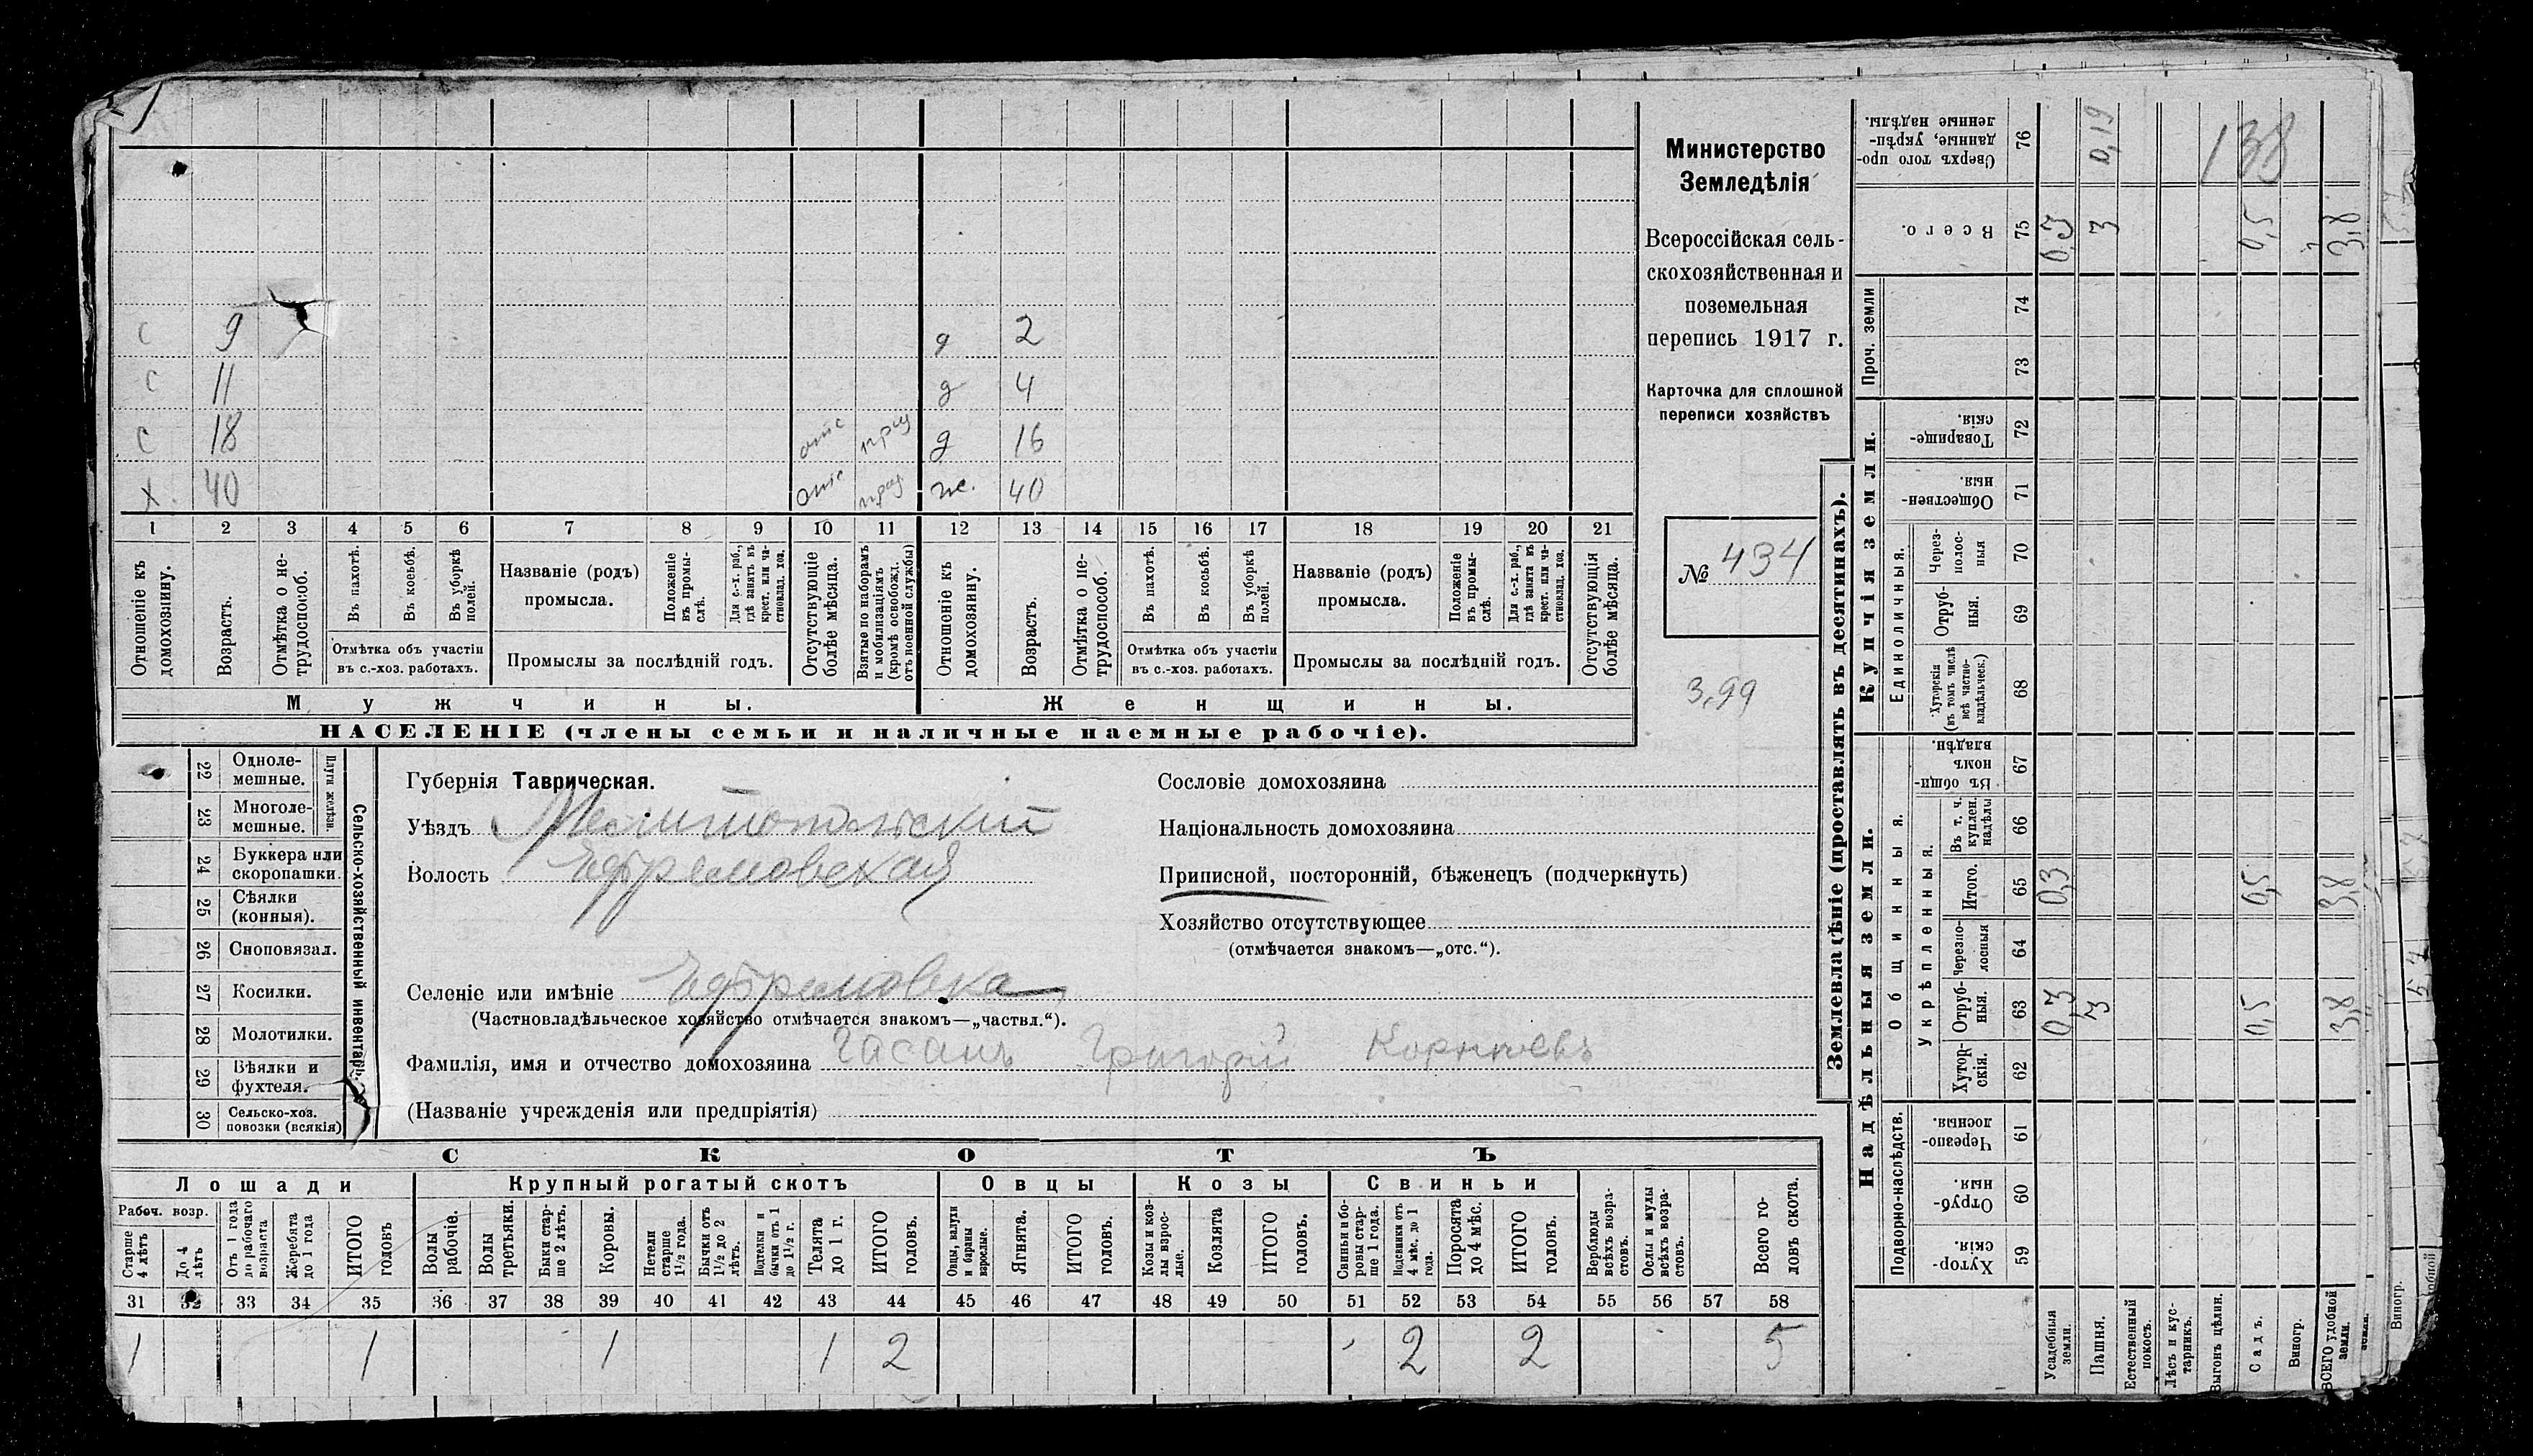 с 9 д 2
с 11 д 4
с 18 отс приз д 16
х. 40 отс приз ж. 40
1 2 3 4 5 6 7 8 9 10 11 12 13 14 15 16 17 18 19 20 21
Отношеніе къ домохозяину.
Возрастъ.
Отмѣтка о нетрудоспособ.
Въ пахотѣ.
Въ косьбѣ.
Въ уборкѣ полей.
Отмѣтка объ участіи
въ с.-хоз. работахъ.
Названіе (родъ)
промысла.
Положеніе въ промыслѣ.
Для с.-х. раб., гдѣ занятъ въ крест. или частновлад. хоз.
Промыслы за послѣдній годъ.
Отсутствующіе болѣе мѣсяца.
Взятые по наборамъ и мобилизаціямъ (кромѣ освобожд. отъ военной службы)
Отношеніе къ домохозяину.
Возрастъ.
Отмѣтка о нетрудоспособ.
Въ пахотѣ.
Въ косьбѣ.
Въ уборкѣ полей.
Отмѣтка объ участіи
въ с.-хоз. работахъ.
Названіе (родъ)
промысла.
Положеніе въ промыслѣ.
Для с.-х. раб., гдѣ занята въ крест. или частновлад. хоз.
Промыслы за послѣдній годъ.
Отсутствующія болѣе мѣсяца.
Мужчины. Женщины.
НАСЕЛЕНІЕ (члены семьи и наличные наемные рабочіе).
Министерство
Земледѣлія
Всероссійская сель-
скохозяйственная и
поземельная
перепись 1917 г.
Карточка для сплошной
переписи хозяйствъ
№ 434
3,99
22 Однолемешные.
23 Многолемешные.
Плуги желѣзн.
24 Буккера или скоропашки.
25 Сѣялки (конныя).
26 Сноповязал.
27 Косилки.
28 Молотилки.
29 Вѣялки и фухтеля.
30 Сельско-хоз. повозки (всякія)
Сельско-хозяйственный инвентарь.
Губернія Таврическая.
Уѣздъ Мелитопольскій
Волость Ефремовская
Селеніе или имѣніе Ефремовка
(Частновладѣльческое хозяйство отмѣчается знакомъ—„частвл.“).
Фамилія, имя и отчество домохозяина Гасанъ Григорій Корнѣевъ
(Названіе учрежденія или предпріятія)
Сословіе домохозяина
Національность домохозяина
Приписной, посторонній, бѣженецъ (подчеркнуть)
Хозяйство отсутствующее
(отмѣчается знакомъ—„отс.“).
СКОТЪ
Лошади Крупный рогатый скотъ Овцы Козы Свиньи
Рабоч. возр.
Старше 4 лѣтъ
До 4 лѣтъ
Отъ 1 года до рабочаго возраста
Жеребята до 1 года
ИТОГО головъ
Волы рабочіе.
Волы третьяки.
Быки старше 2 лѣтъ.
Коровы.
Нетели старше 1½ года.
Бычки отъ 1½ до 2 лѣтъ.
Подтелки и бычки отъ 1 до 1½ г.
Телята до 1 г.
ИТОГО головъ.
Овцы, валухи и бараны взрослые.
Ягнята.
ИТОГО головъ.
Козы и козлы взрослые.
Козлята
ИТОГО головъ.
Свиньи и боровы старше 1 года.
Подсвинки отъ 4 мѣс. до 1 года.
Поросята до 4 мѣс.
ИТОГО головъ.
Верблюды всѣхъ возрастовъ.
Ослы и мулы всѣхъ возрастовъ.
Всего головъ скота.
31 32 33 34 35 36 37 38 39 40 41 42 43 44 45 46 47 48 49 50 51 52 53 54 55 56 57 58
1 1 1 1 2 2 2 5
Землевладѣніе (проставлять въ десятинахъ).
Надѣльныя земли. Купчія земли.
Подворно-наслѣдств.
Общинныя.
Укрѣпленныя.
Единоличныя.
Проч. земли
Хуторскія. 59
Отрубныя. 60
Черезполосныя. 61
Хуторскія. 62
Отрубныя. 63
Черезполосныя 64
Итого. 65
Въ т. ч. куплен. надѣлы 66
Въ общинномъ владѣн. 67
Хуторскія (въ томъ числѣ всѣ частновладѣльческ.) 68
Отрубныя. 69
Черезполосныя 70
Общественныя. 71
Товарищескія. 72
73
74
Всего. 75
Сверхъ того проданные, укрѣпленные надѣлы. 76
Усадебныя земли. 0,3 0,3 0,3
Пашня. 3 3 0,19
Естественный покосъ.
Лѣсъ и кустарникъ.
Выгонъ цѣлин.
Садъ. 0,5 0,5 0,5
Виногр.
ВСЕГО удобной земли. 3,8 3,8 3,8
138
Виногр.